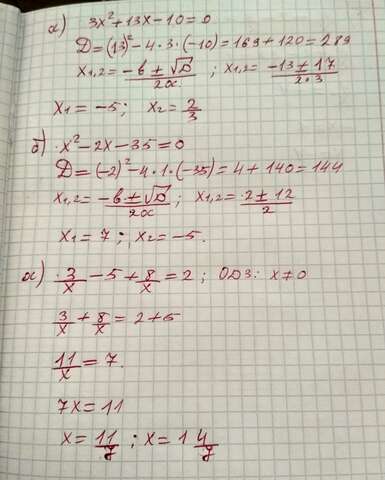 а) 3x² + 13x - 10 = 0
D = (13)² - 4 · 3 · (-10) = 169 + 120 = 289
x₁,₂ = (-b ± √D)/2a ; x₁,₂ = (-13 ± 17)/(2·3)
x₁ = -5; x₂ = 2/3
б) x² - 2x - 35 = 0
D = (-2)² - 4 · 1 · (-35) = 4 + 140 = 144
x₁,₂ = (-b ± √D)/2a ; x₁,₂ = (2 ± 12)/2
x₁ = 7; x₂ = -5.
а) 3/x - 5 + 8/x = 2; ОДЗ: x ≠ 0
3/x + 8/x = 2 + 5
11/x = 7.
7x = 11
x = 11/7 ; x = 1 4/7